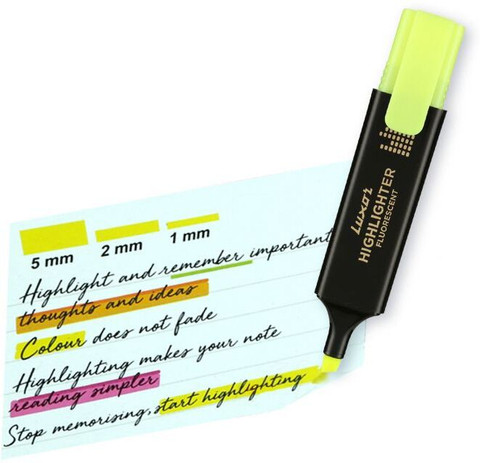 5 mm 2 mm 1 mm
Highlight and remember important
thoughts and ideas
Colour does not fade
Highlighting makes your note
reading simpler
Stop memorising, start highlighting
Luxor
HIGHLIGHTER
FLUORESCENT